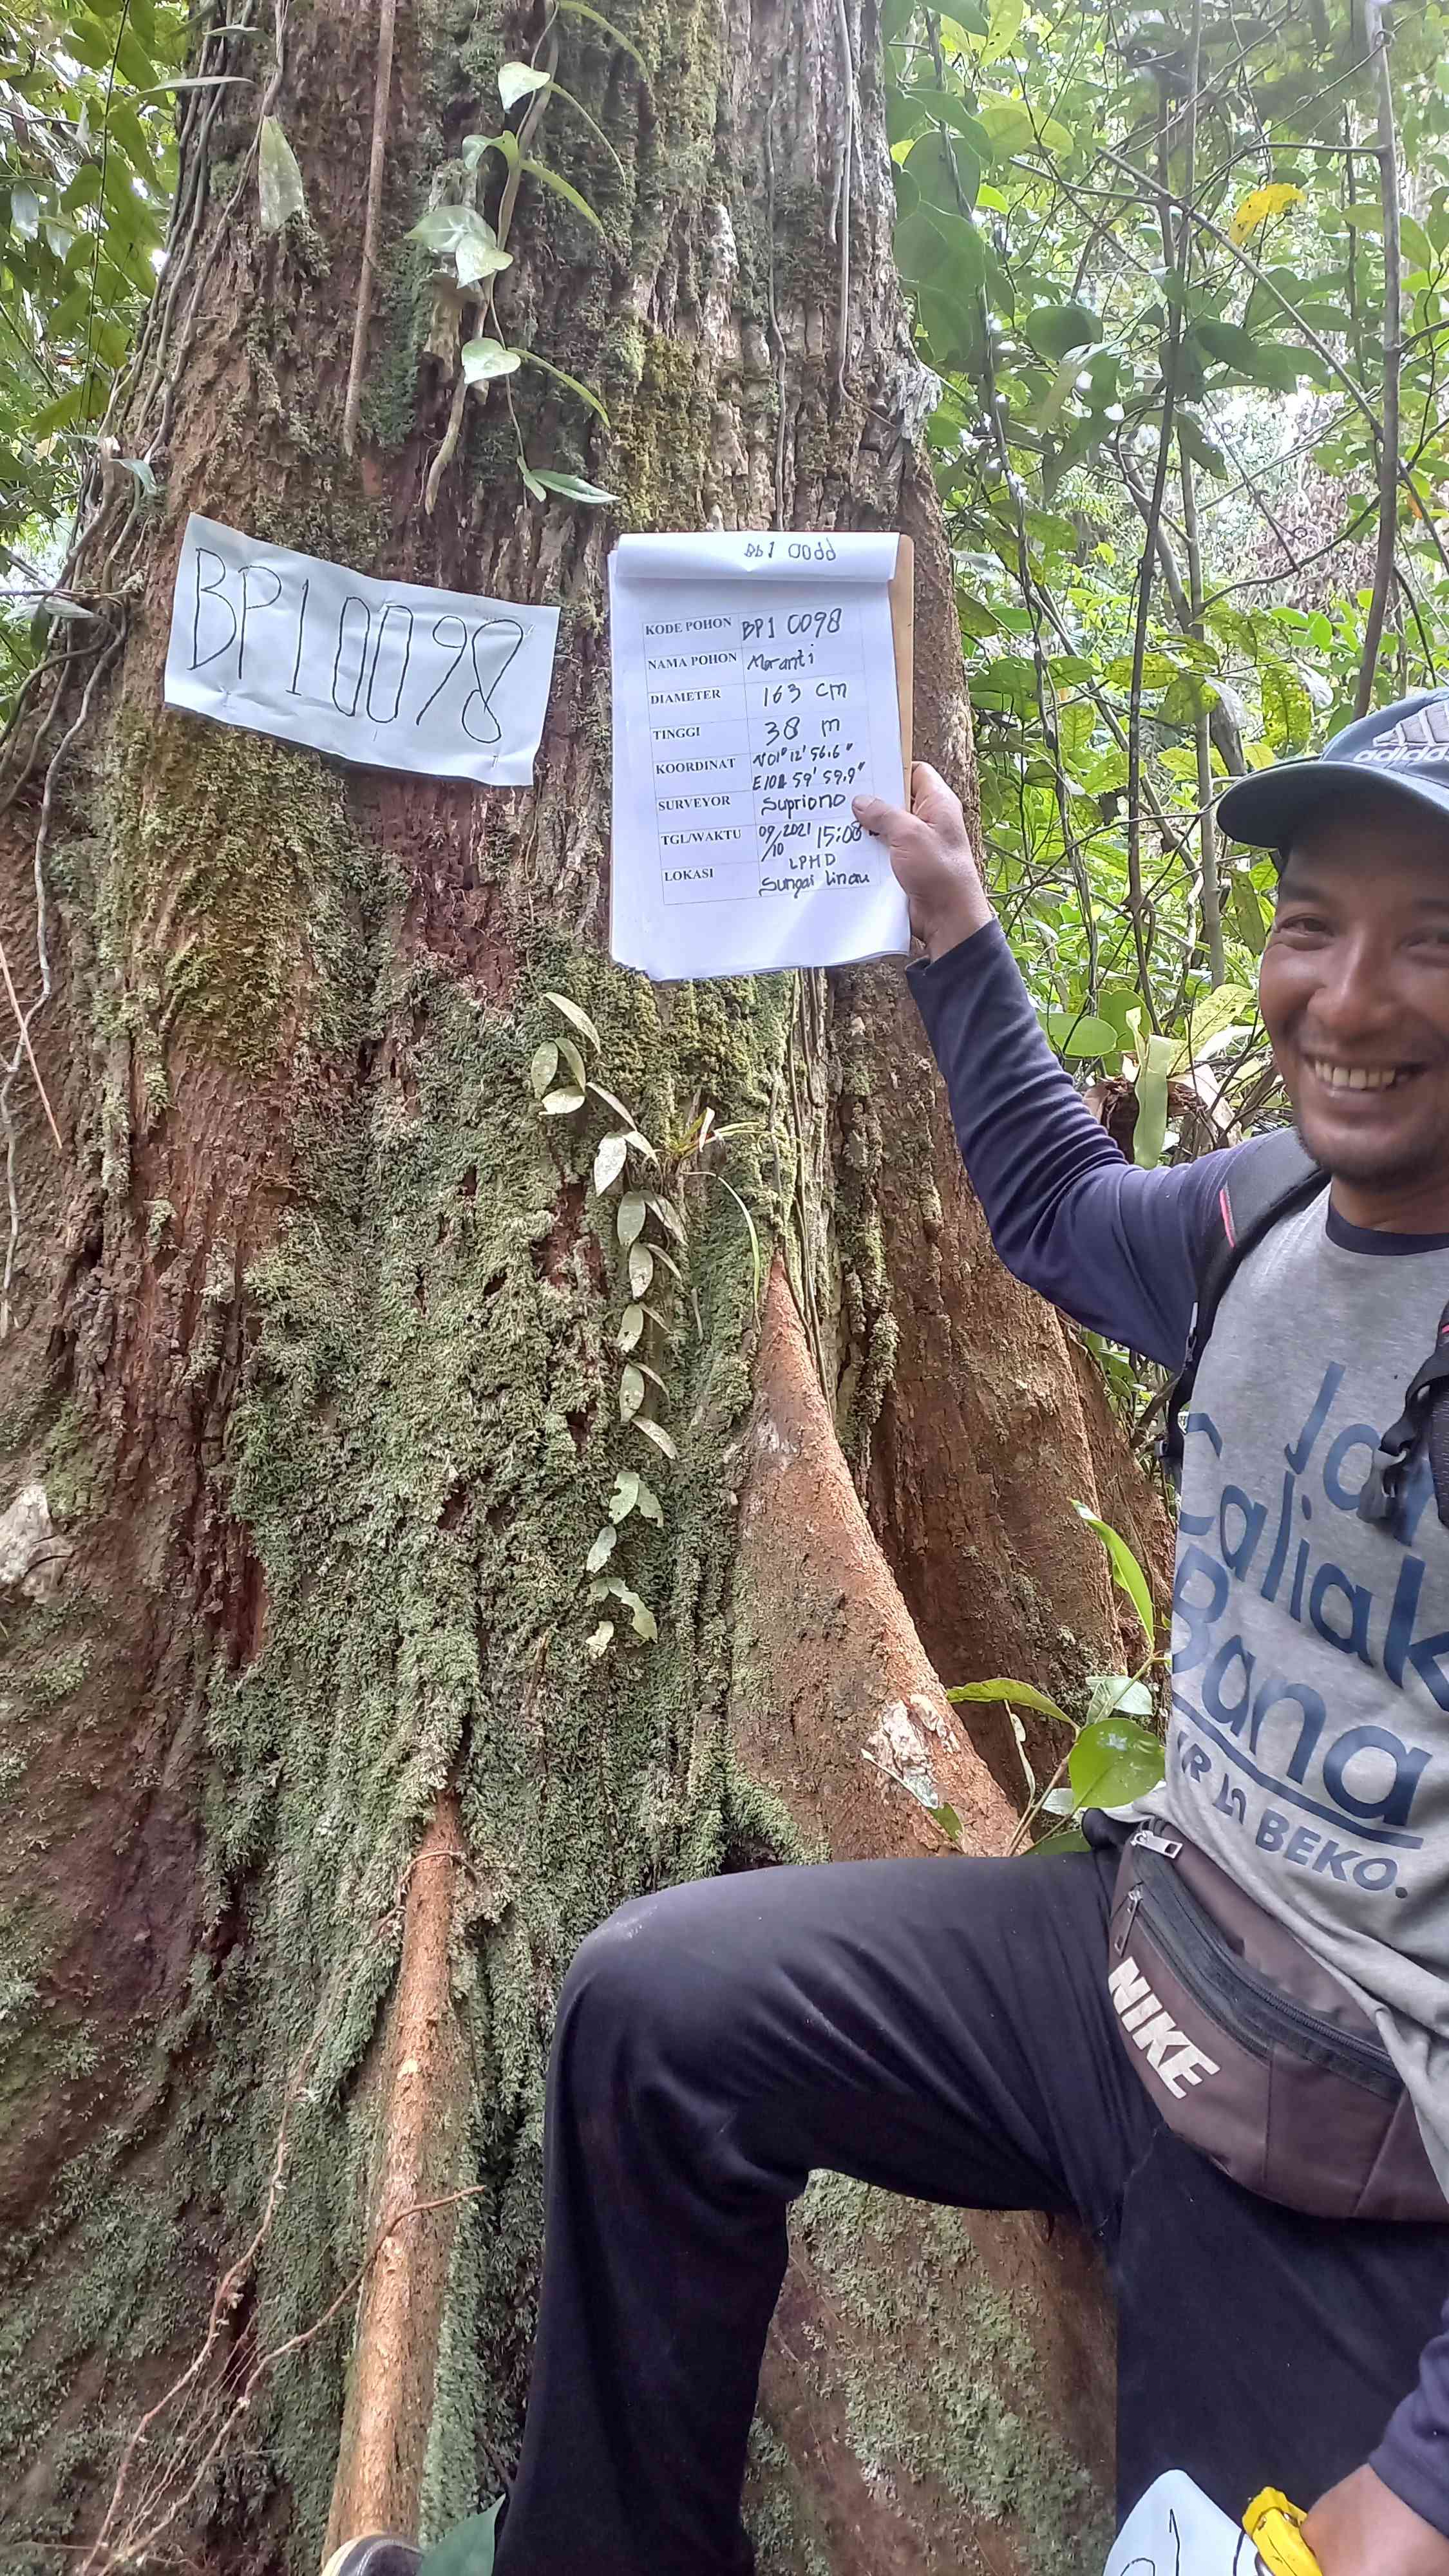 BP10098
BP1 00dd
KODE POHON BP1 0098
NAMA POHON Moranti
DIAMETER 163 cm
TINGGI 38 m
KOORDINAT N 01° 12' 56.6"
E101 59' 59.9"
SURVEYOR Supriono
TGL/WAKTU 09/10 2021 15:08
LOKASI LPHD
Sungai Linau
adidas
Caliak
Bana
BEKO.
NIKE